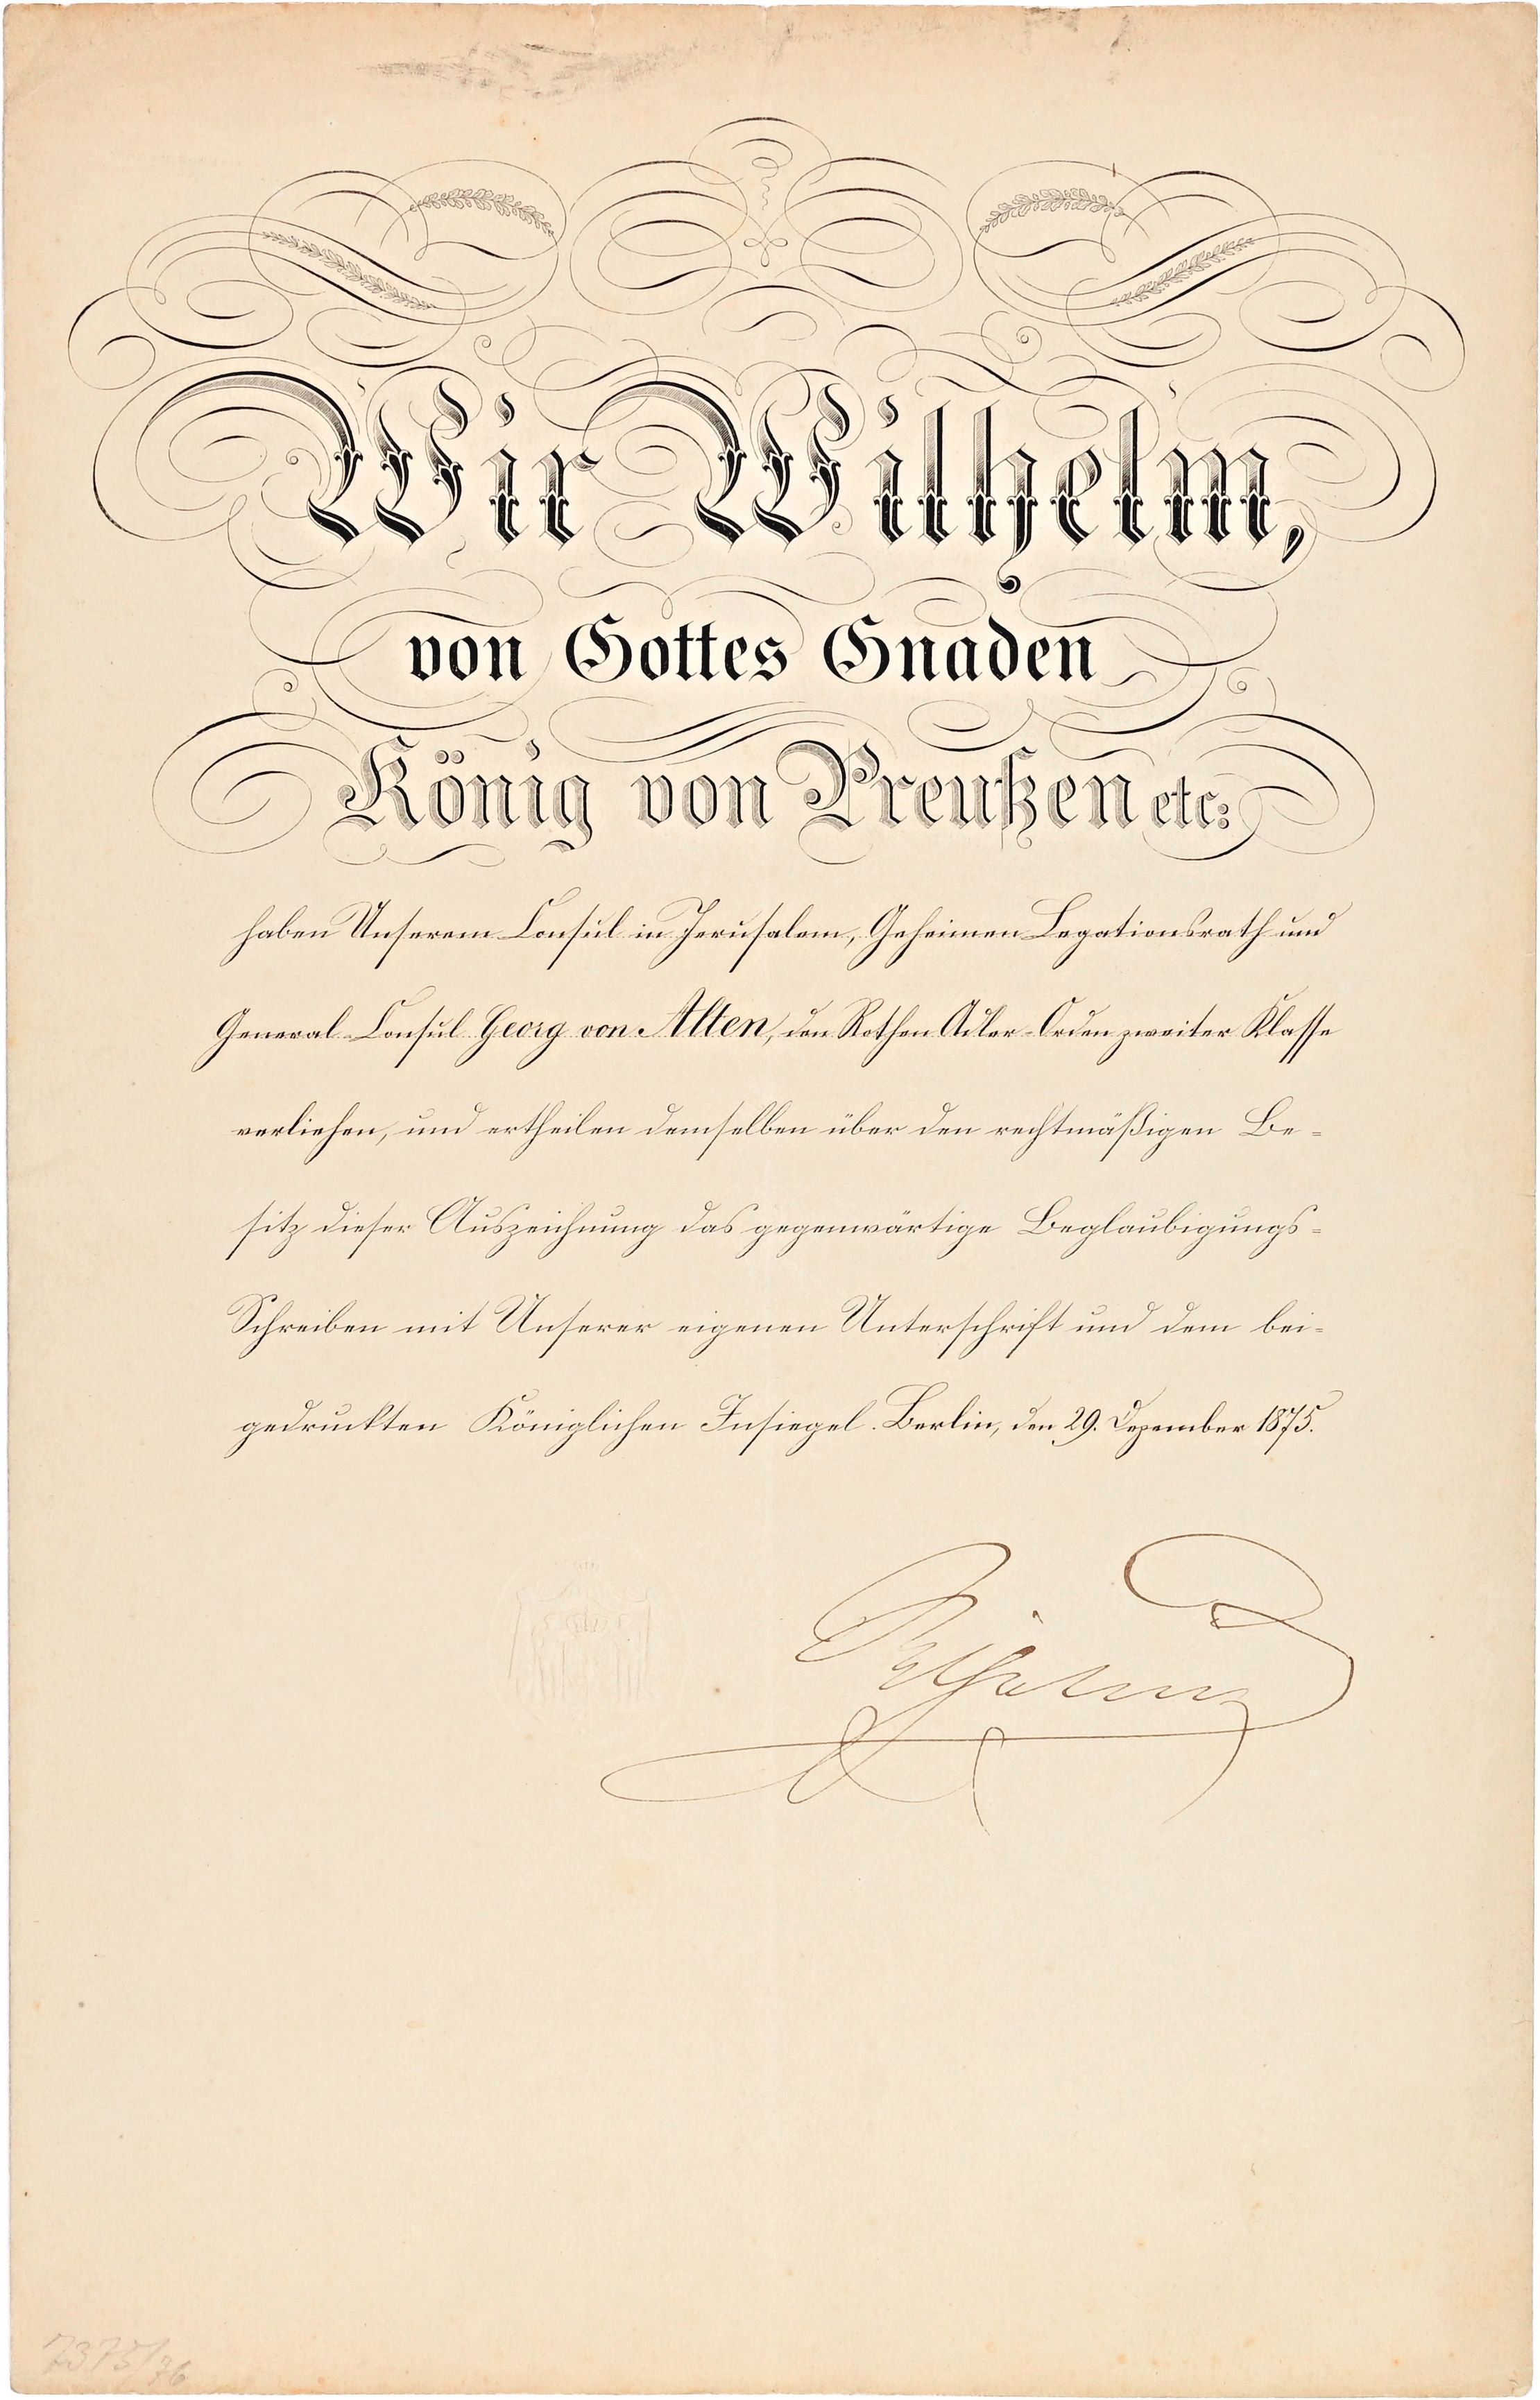 Wir Wilhelm,
von Gottes Gnaden
König von Preußen etc:
haben Unserem Consul in Jerusalem, Geheimen Legationsrath und
General-Consul Georg von Alten, den Rothen Adler-Orden zweiter Klasse
verliehen, und ertheilen demselben über den rechtmäßigen Be-
sitz dieser Auszeichnung das gegenwärtige Beglaubigungs-
Schreiben mit Unserer eigenen Unterschrift und dem bei-
gedruckten Königlichen Insiegel. Berlin, den 29. Dezember 1875.
Wilhelm